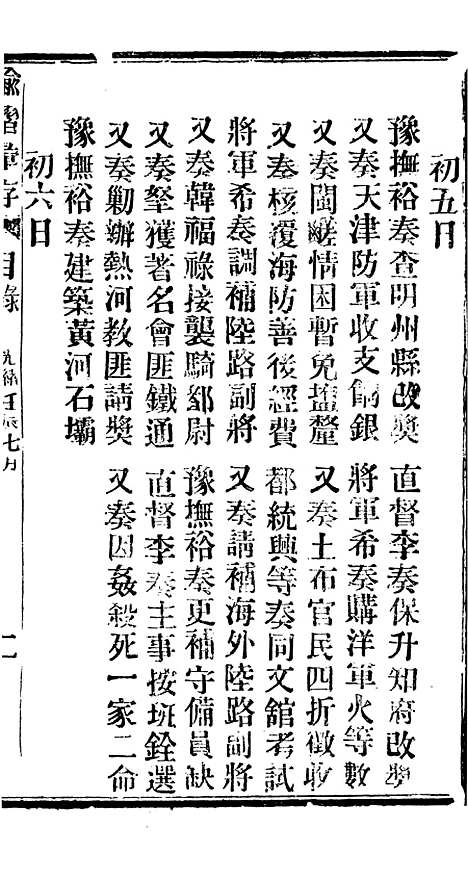 初五日
豫撫裕奏查明州縣改獎　直督李奏保升知府改獎
又奏天津防軍收支餉銀　將軍希奏購洋軍火等數
又奏閩鹺情困暫免鹽釐　又奏土布官民四折徵收
又奏核覆海防善後經費　都統興等奏同文館考試
將軍希奏調補陸路副將　又奏請補海外陸路副將
又奏韓福祿接襲騎都尉　豫撫裕奏更補守備員缺
又奏拏獲著名會匪鐵通　直督李奏主事按班銓選
又奏勦辦熱河教匪請獎　又奏因姦殺死一家二命
豫撫裕奏建築黃河石壩
初六日
諭摺彙存 目錄 光緒壬辰七月 二